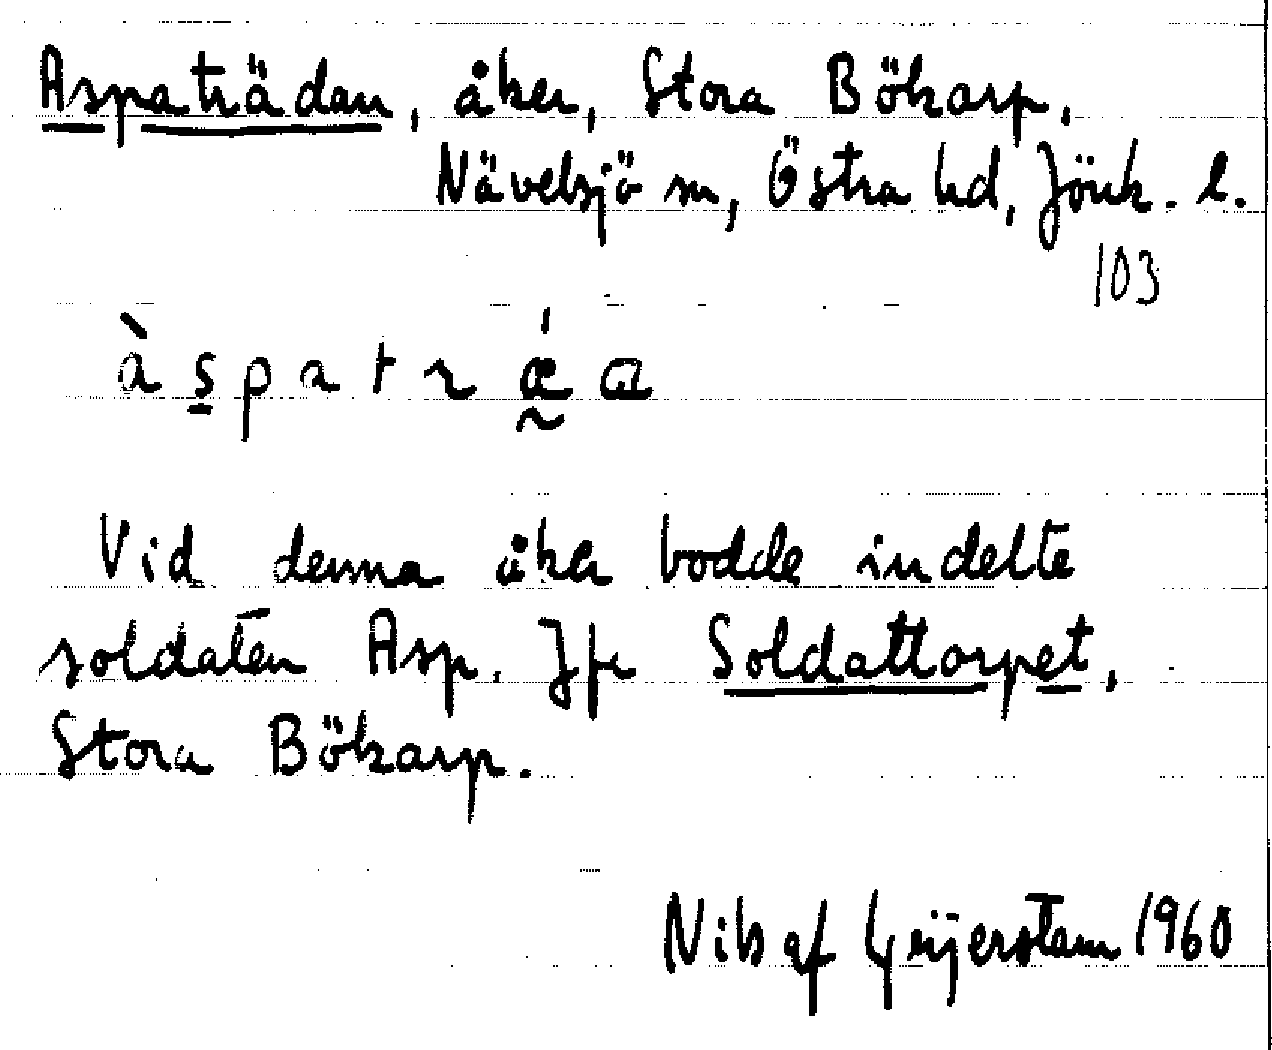 Aspaträdan, åker, Stora Bökarp,
Nävelsjö sn, Östra hd, Jönk. l.
103
àspatrǽɑ
Vid denna åker bodde indelte
soldaten Asp. Jfr Soldattorpet,
Stora Bökarp.
Nils af Geijerstam 1960